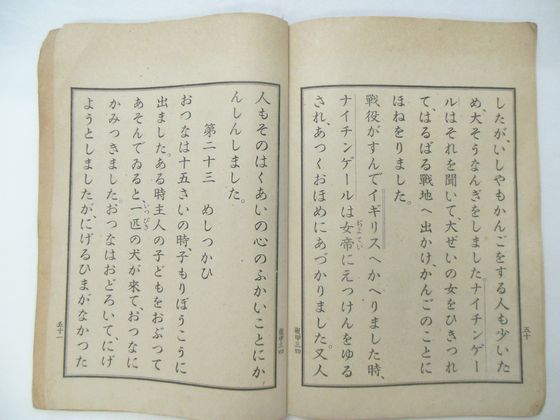 したが、いしやもかんごをする人も少いた
め、大そうなんぎをしました。ナイチンゲー
ルはそれを聞いて、大ぜいの女をひきつれ
て、はるばる戰地へ出かけ、かんごのことに
ほねをりました。
戰役がすんでイギリスへかへりました時、
ナイチンゲールは女帝にえつけんをゆる
され、あつくおほめにあづかりました。又人
五十
人もそのはくあいの心のふかいことにか
んしんしました。
第二十三 めしつかひ
おつなは十五さいの時、子もりぼうこうに
出ました。ある時主人の子どもをおぶつて
あそんでゐると、一匹の犬が來て、おつなに
かみつきました。おつなはおどろいて、にげ
ようとしましたが、にげるひまがなかつた
五十一